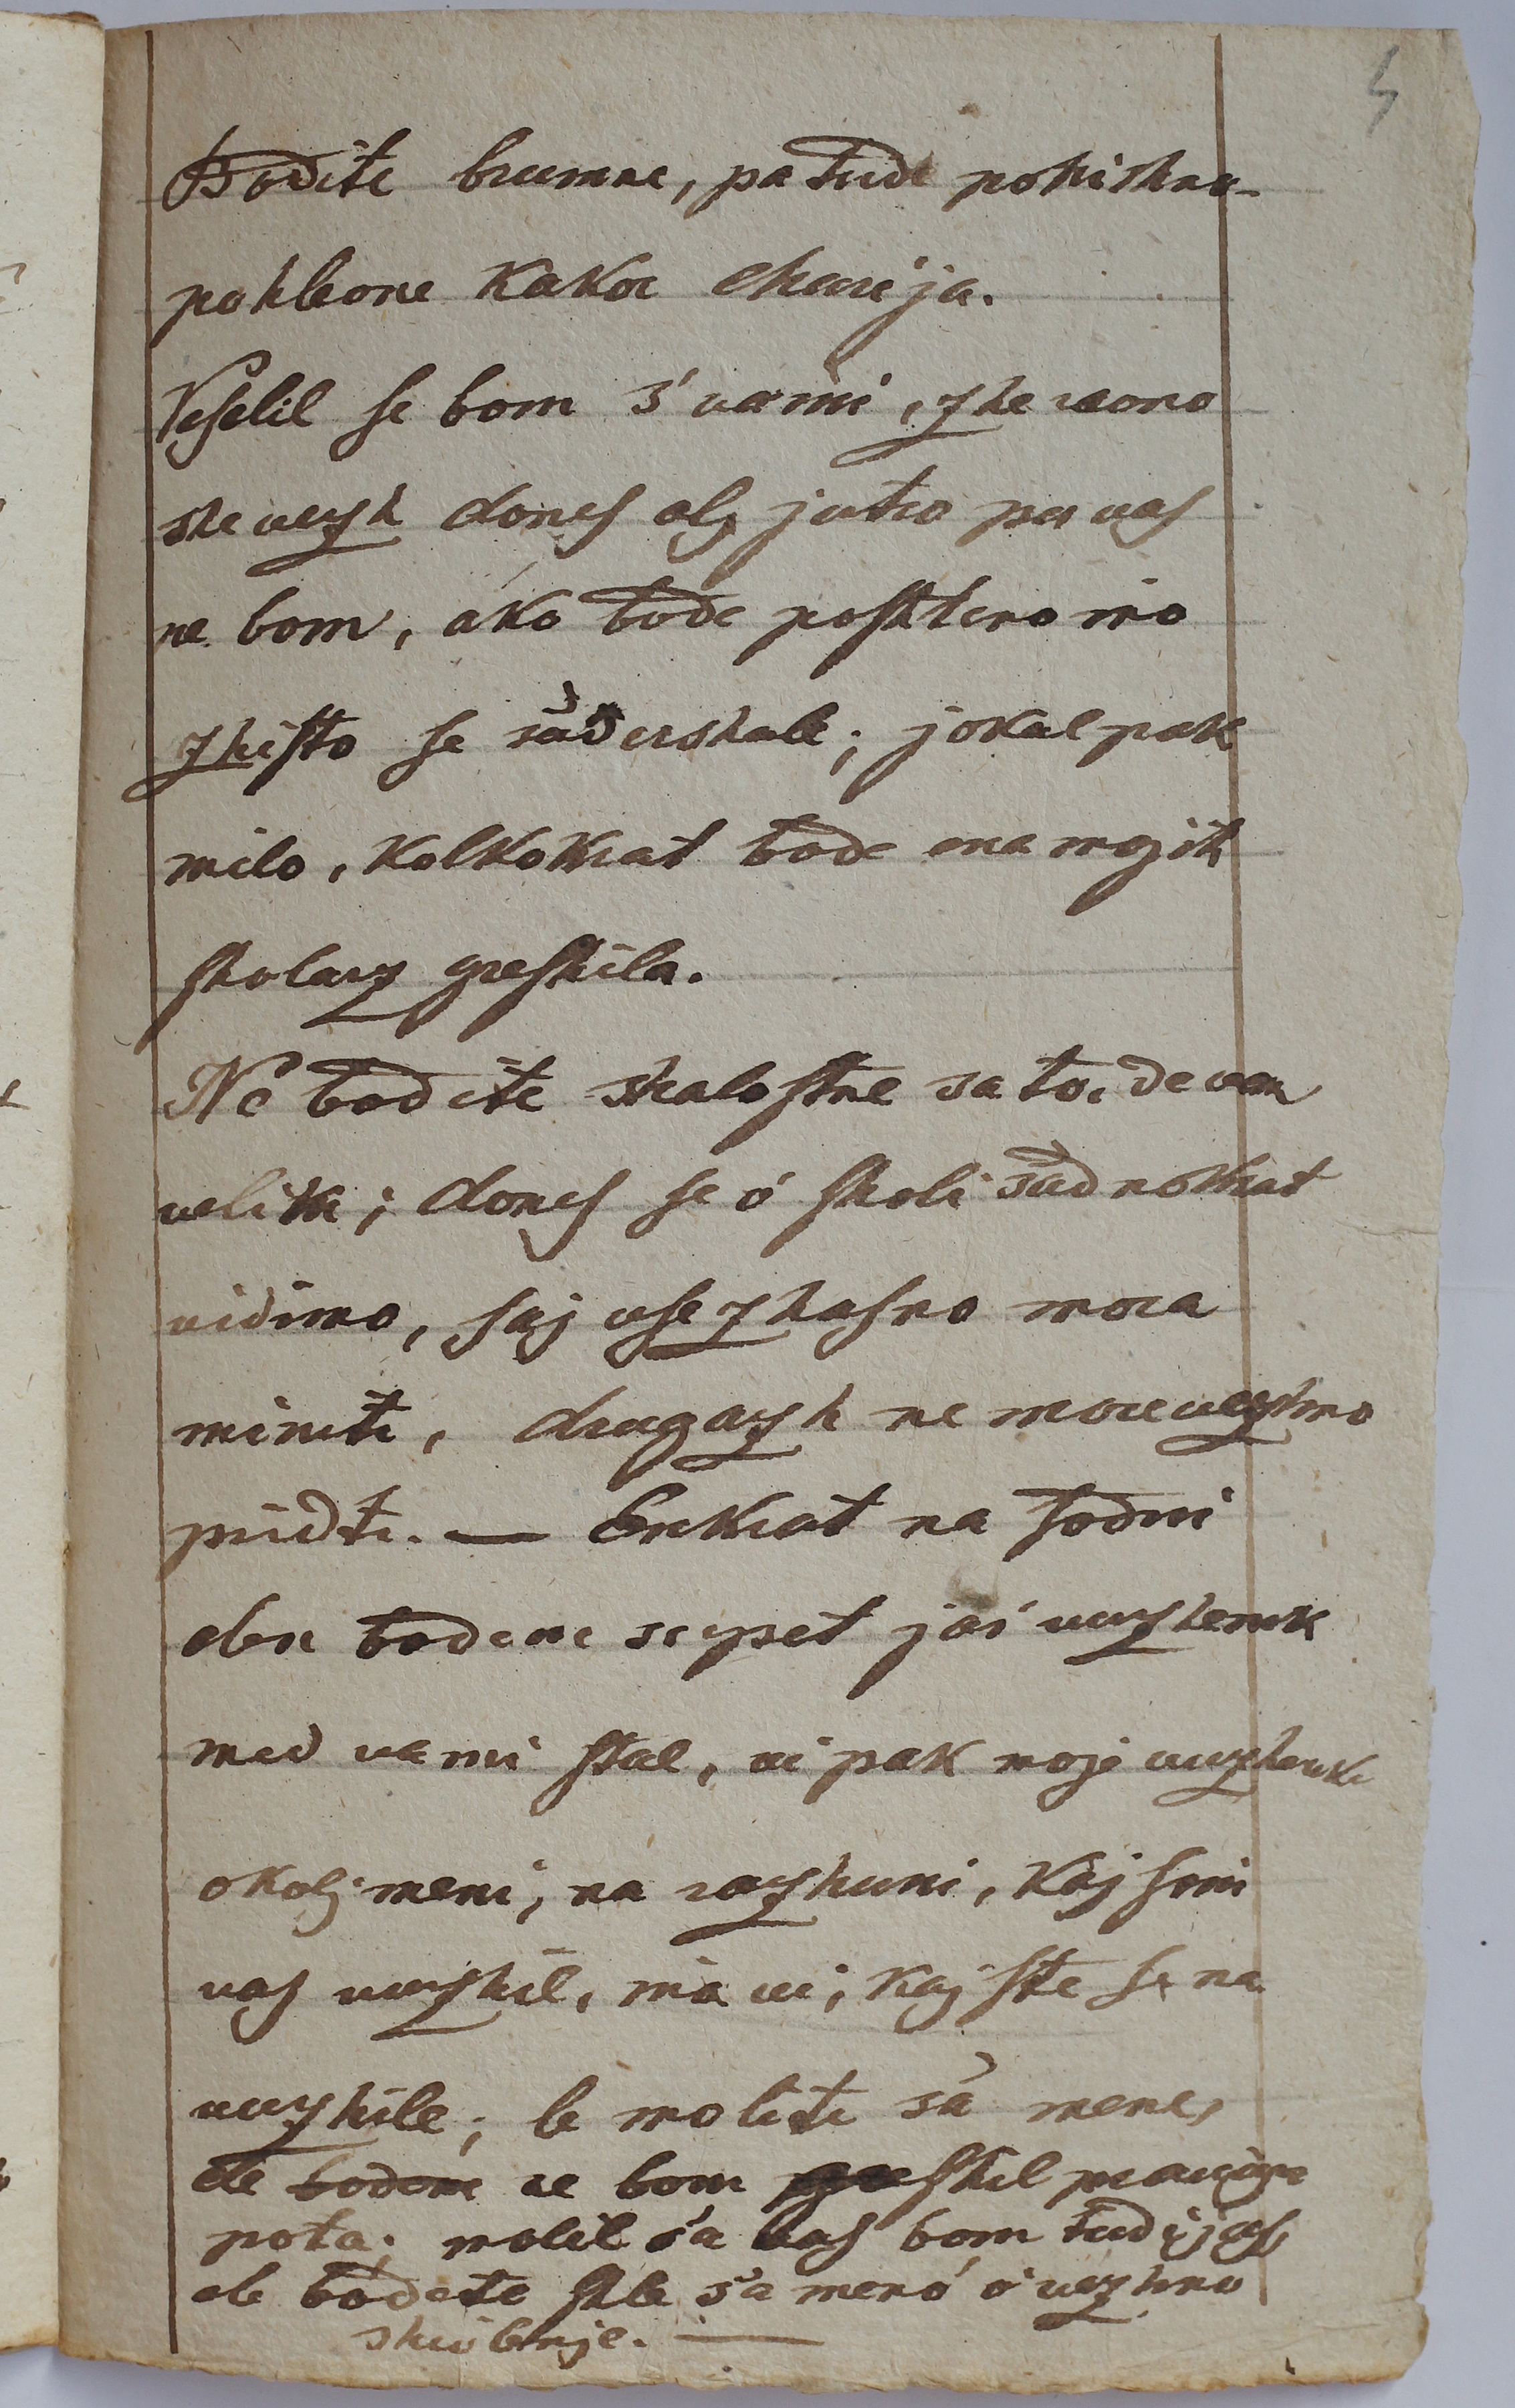 5
Bodite brumne, pa tudi pohishne
pohleone kakor eharija.
Veselil se bom s' vami, zhe ravno
she vezh dones alj jutro per vas
ne bom, ako bode poshteno ino
zhisto se sadershale; jokal pak
milo, kolkokrat bode ena mojih
sholarz greshila.
Ne bodite shalostne sa to, de vam
velike; dones se o' sholi sadnokrat
vidimo, saj vse zhasno mora
miniti, drugazh ne more vezhno
priditi. — Enkrat na sodni
dbn bodem sepet jas vuzhenik
med vami stal, vi pak moje vuzhenke
okolj meni, na razhuni, kaj sim
vas vuzhil, ina vi, kaj ste se na
vuzhile; le molite sa mene,
de bodem ne bom greshil praviga
pota; molil sa vas bom tudi jas,
de bodete shle sa meno o' vezhno
shivlenje. —